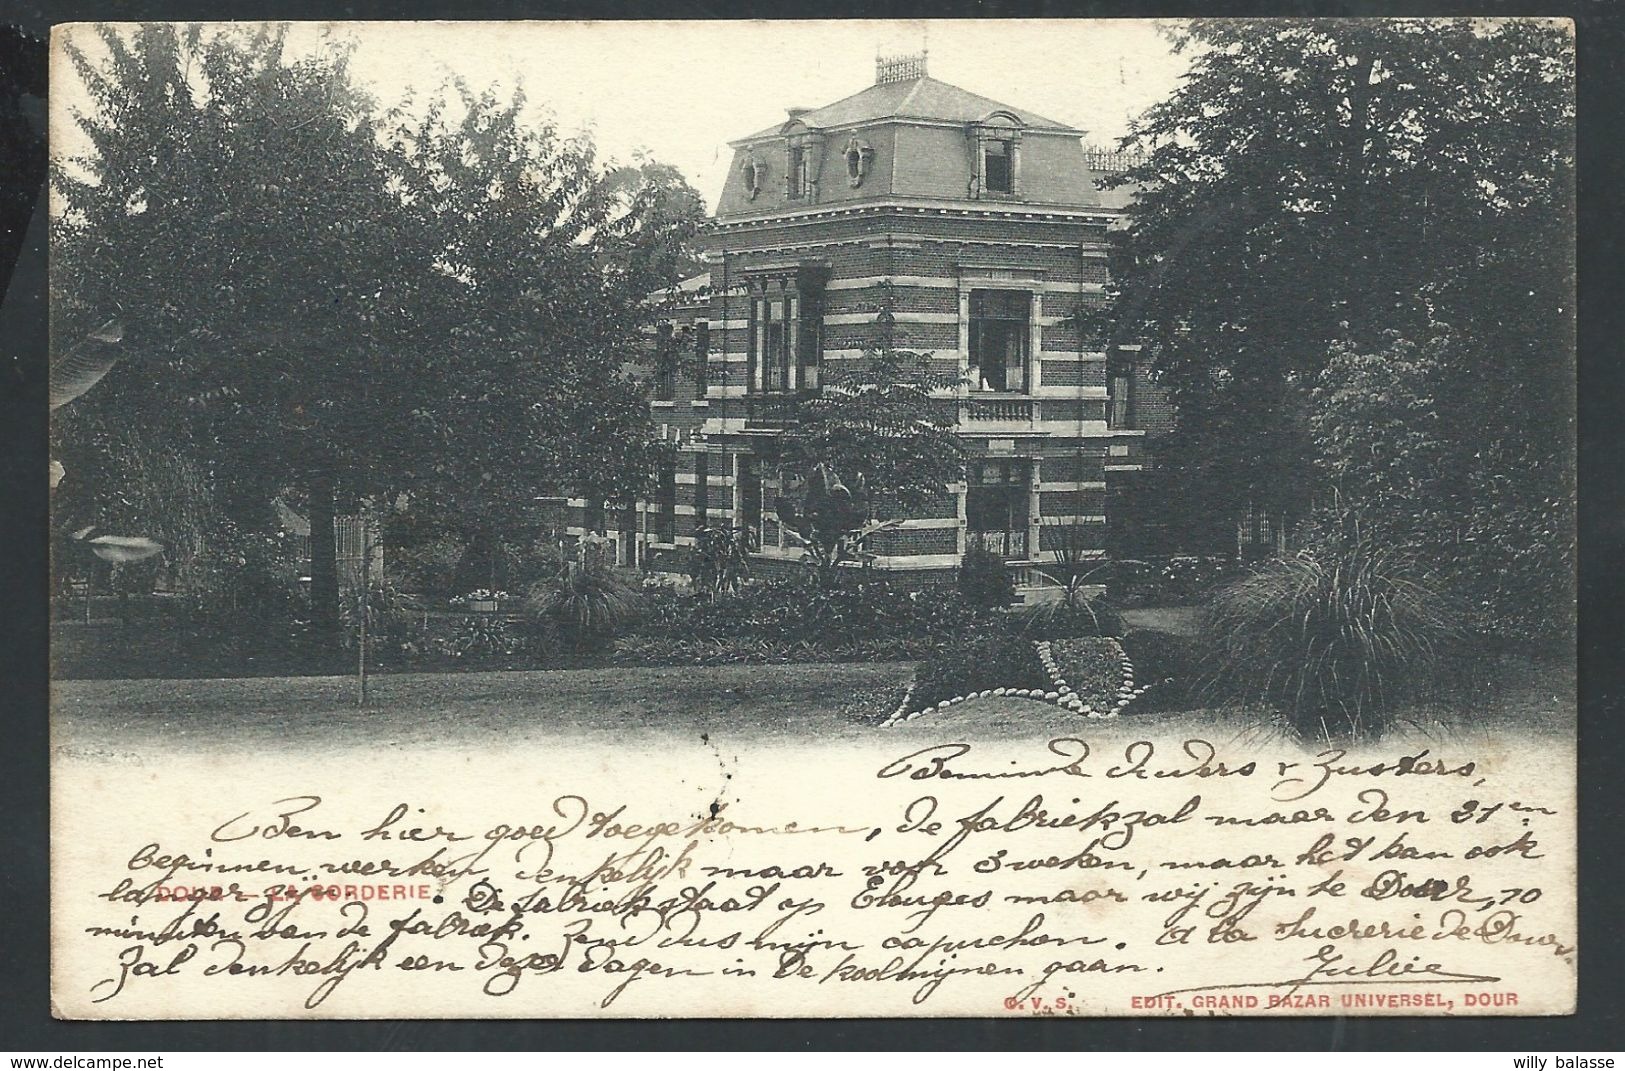 Beminde Ouders & Zusters,
Ben hier goed toegekomen, de fabriek zal maar den 21en
beginnen werken, denkelijk maar voor 3 weken, maar het kan ook
langer zijn. De fabriek staat op Elouges maar wij zijn te Dour, 10
minuten van de fabriek. Zend dus mijn capuchon. A la Sucrerie de Dour.
Zal denkelijk een dezer dagen in de koolmijnen gaan. Julien
DOUR - LA CORDERIE
C. V. S. EDIT. GRAND BAZAR UNIVERSEL, DOUR
willy balasse